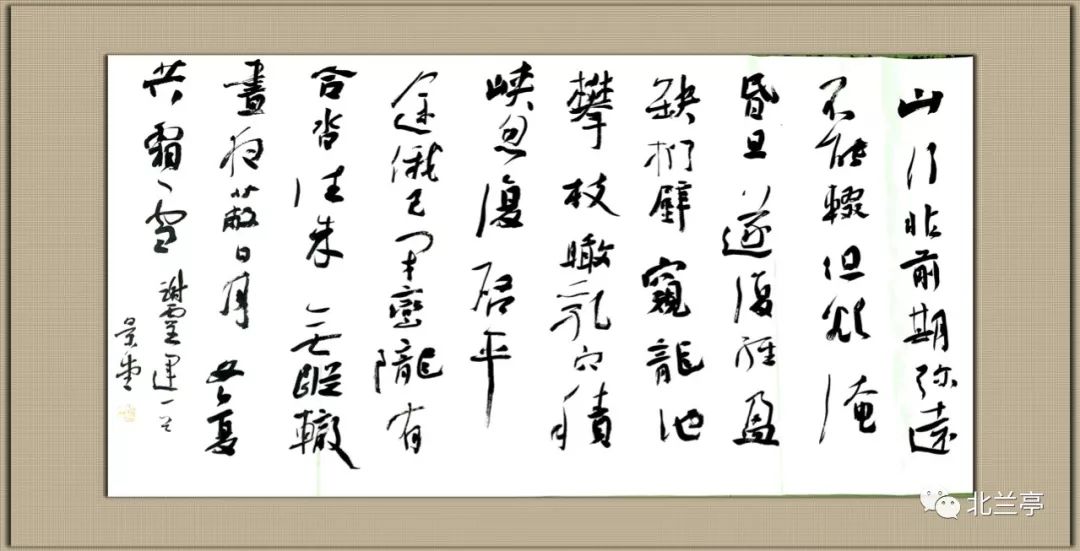 山行非前期弥遠
不能輟但欲淹
昏旦遂復經盈
缺捫壁窺龍池
攀枝瞰乳穴積
峡忽復启平
途俄已閉巒隴有
合沓往来無蹤轍
晝夜蔽日月冬夏
共霜雪
謝靈運一首
北兰亭